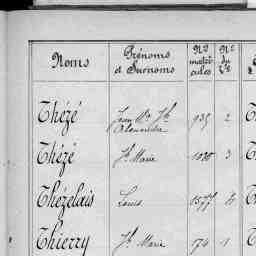 Noms
Prénoms et Surnoms
Nos matri cules
No du Vo
Thézé Jean Mie Jh Alexandre 935 2
Thézé Jh Marie 1030 3
Thézelais Louis 1577 4
Thierry Jh Marie 174 1